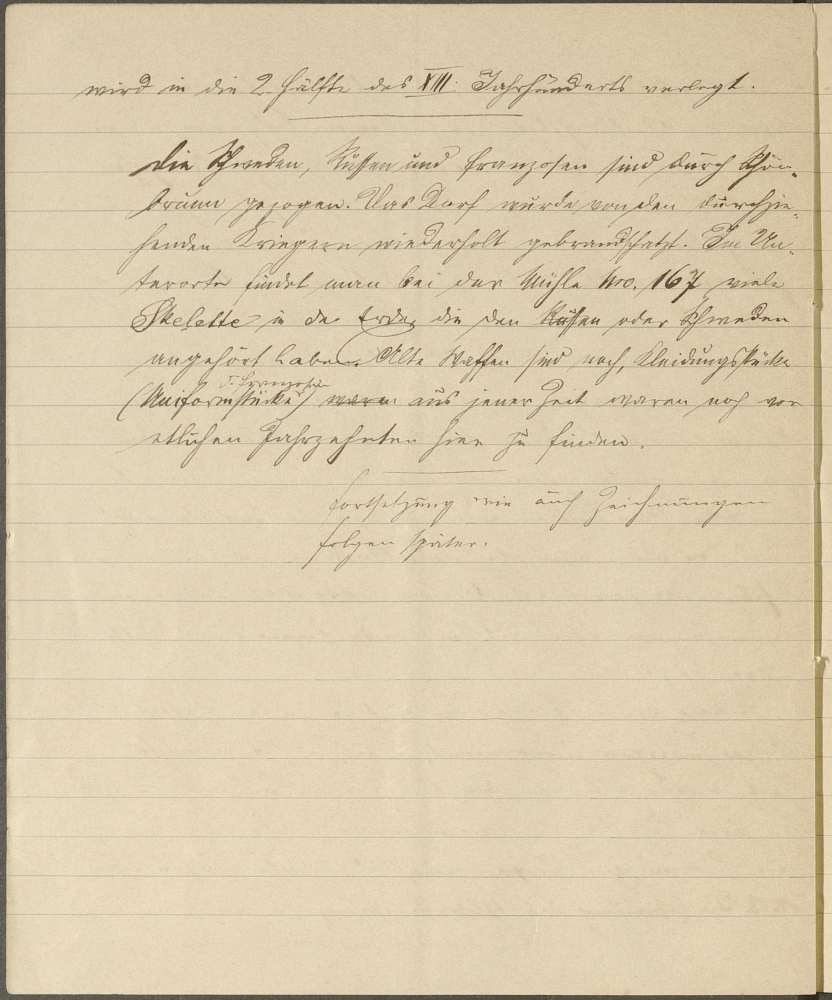 wird in die 2. Hälfte des XIII. Jahrhunderts verlegt.
Die Schweden, Russen und Franzosen sind durch Schön-
brunn gezogen. Das Dorf wurde von den durchzie-
henden Kriegern wiederholt gebrandschatzt. Im Un-
terorte findet man bei der Mühle Nro. 167 viele
Skelette in der Erde, die den Russen oder Schweden
angehört haben. Alte Waffen sind noch, Kleidungsstücke
d. Franzosen
(Uniformstücke) waren aus jener Zeit waren noch vor
etlichen Jahrzehnten hier zu finden.
Fortsetzung wie auch Zeichnungen
folgen später.